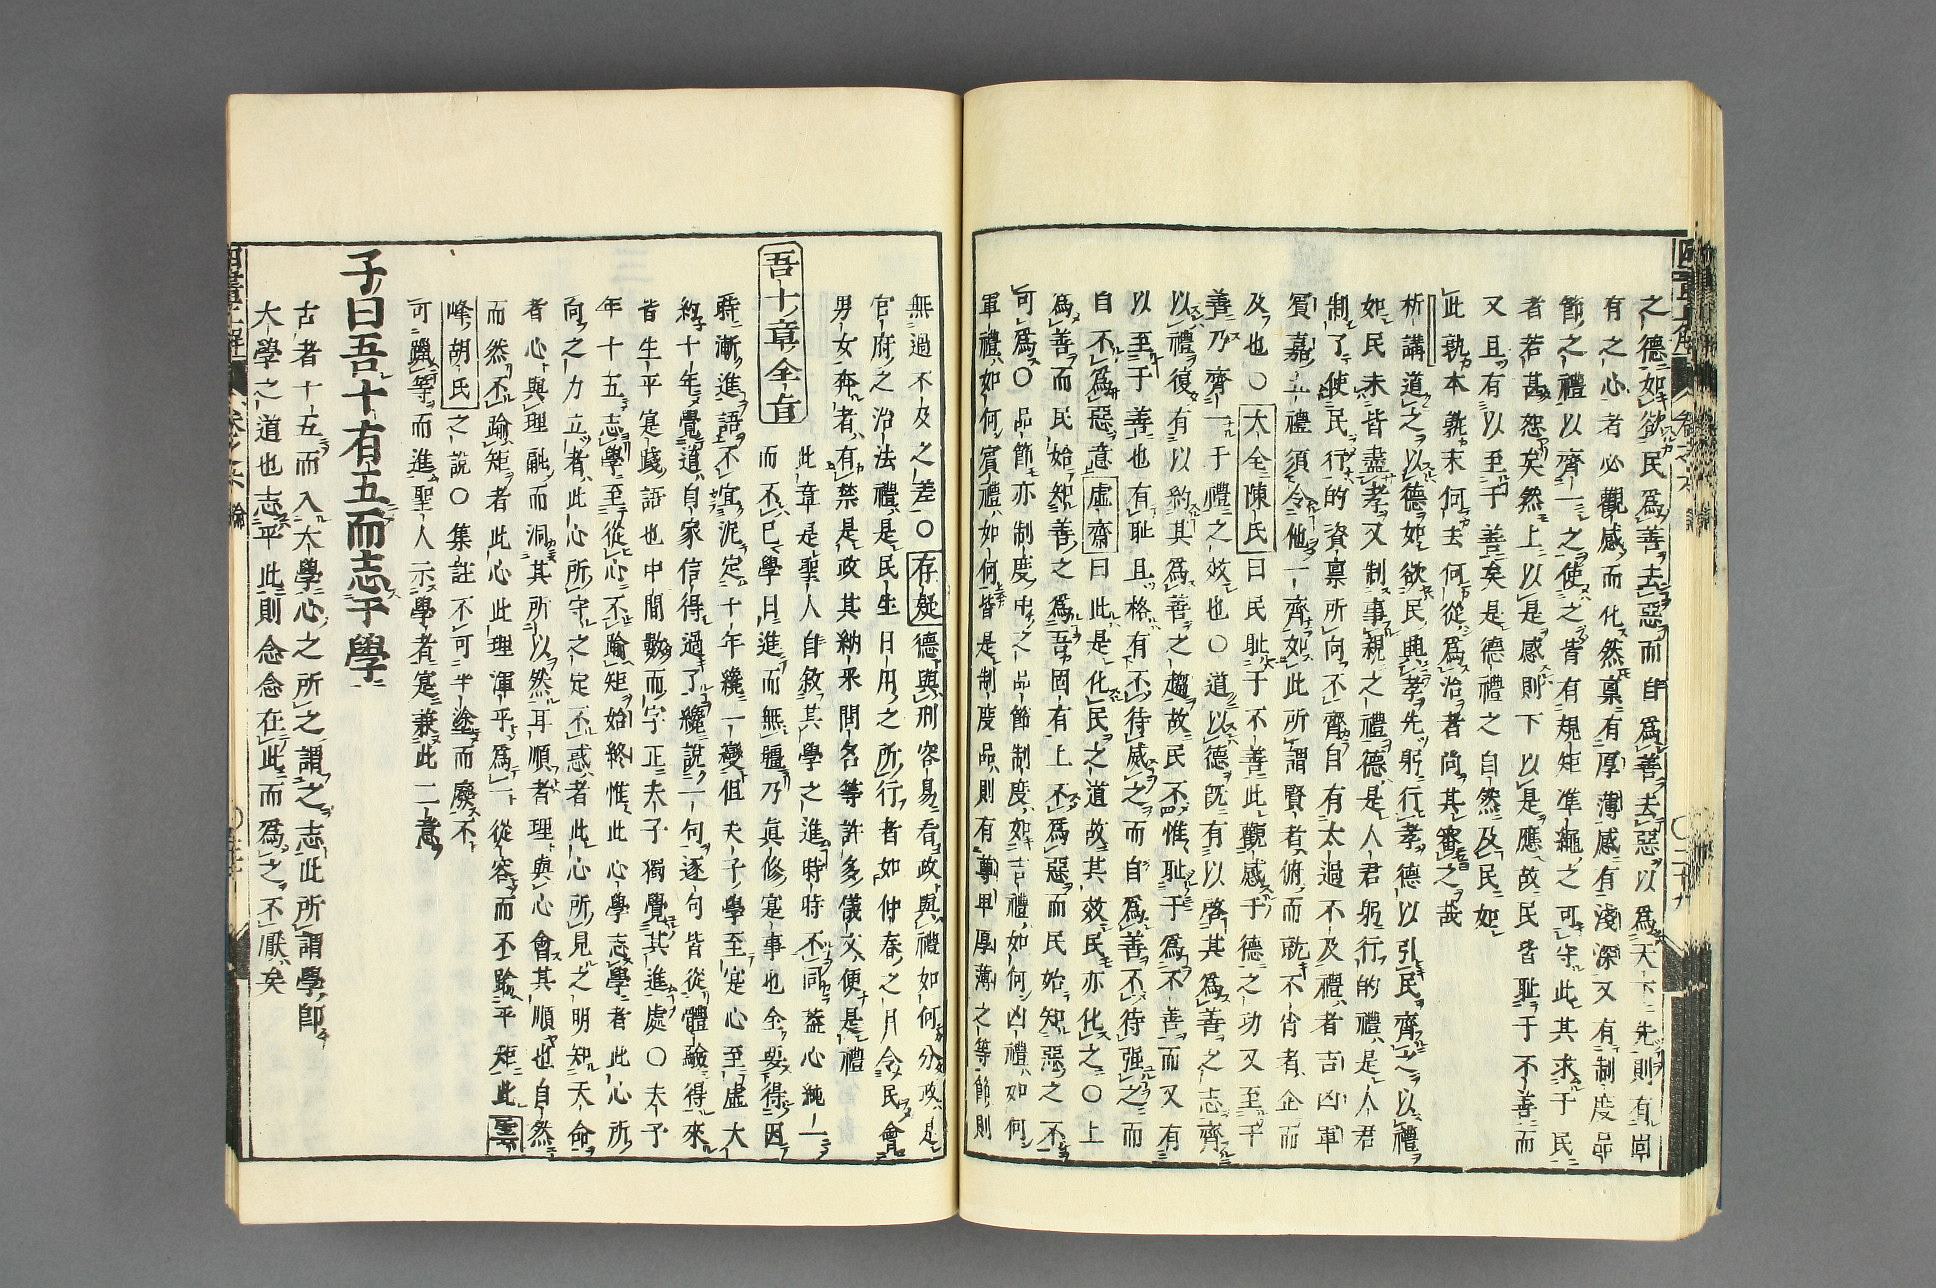 之德如欲民爲善去惡而自爲善去惡以爲天下先則有固
有之心者必觀感而化然稟有厚薄感有淺深又有制度品
節之禮以齊一之使之皆有規矩準繩之可守此其求于民
者若甚怨矣然上以是感則下以是應故民皆耻于不善而
又且有以至于善矣是德禮之自然及民如
此孰本孰末何去何從爲治者尚其審之哉
析講道之以德如欲民興孝先躬行孝德以引民齊之以禮
如民未皆盡孝又制事親之禮德是人君躬行的禮是人君
制了使民行的資禀所向不齊自有太過不及禮者吉凶軍
賓嘉五禮須令他一齊如此所謂賢者俯而就不肖者企而
及也〇大全陳氏曰民耻于不善此觀感于德之功又至于
善乃齊一于禮之效也〇道以德旣有以啓其爲善之志齊
以禮復有以約其爲善之趨故民不惟耻于爲不善而又有
以至于善也有耻且格有不待威之而自爲善不待强之而
自不爲惡意虛齋曰此是化民之道故其效民亦化之〇上
爲善而民始知善之爲吾固有上不爲惡而民始知惡之不
可爲〇品節亦制度中之品節制度如吉禮如何凶禮如何
軍禮如何賓禮如何皆是制度品則有尊卑厚薄之等節則
無過不及之差〇存疑德與刑容易看政與禮如何分政是
官府之治法禮是民生日用之所行者如仲春之月令民會
男女奔者有禁是政其納采問名等許多儀文便是禮
吾十章全旨
此章是聖人自敘其學之進時時不同蓋心純一
而不已學日進而無疆乃眞修寔事也全要得因
時漸進語不宜泥定十年纔一變但夫子學至寔心至虛大
約十年覺道自家信得過了纔說一句逐句皆從體驗得來
皆生平寔踐語也中間數而字正夫子獨覺其進處〇夫子
年十五志學至從心不踰矩始終惟此心學志學者此心所
向之力立者此心所守之定不惑者此心所見之明知天命
者心與理融而洞其所以然耳順者理與心會其順也自然
而然不踰矩者此心此理渾乎爲一從容而不踰乎矩此雲
峰胡氏之說〇集註不可半途而廢不
可躐等而進聖人示學者寔兼此二意
子曰吾十有五而志于學
古者十五而入大學心之所之謂之志此所謂學即
大學之道也志乎此則念念在此而爲之不厭矣